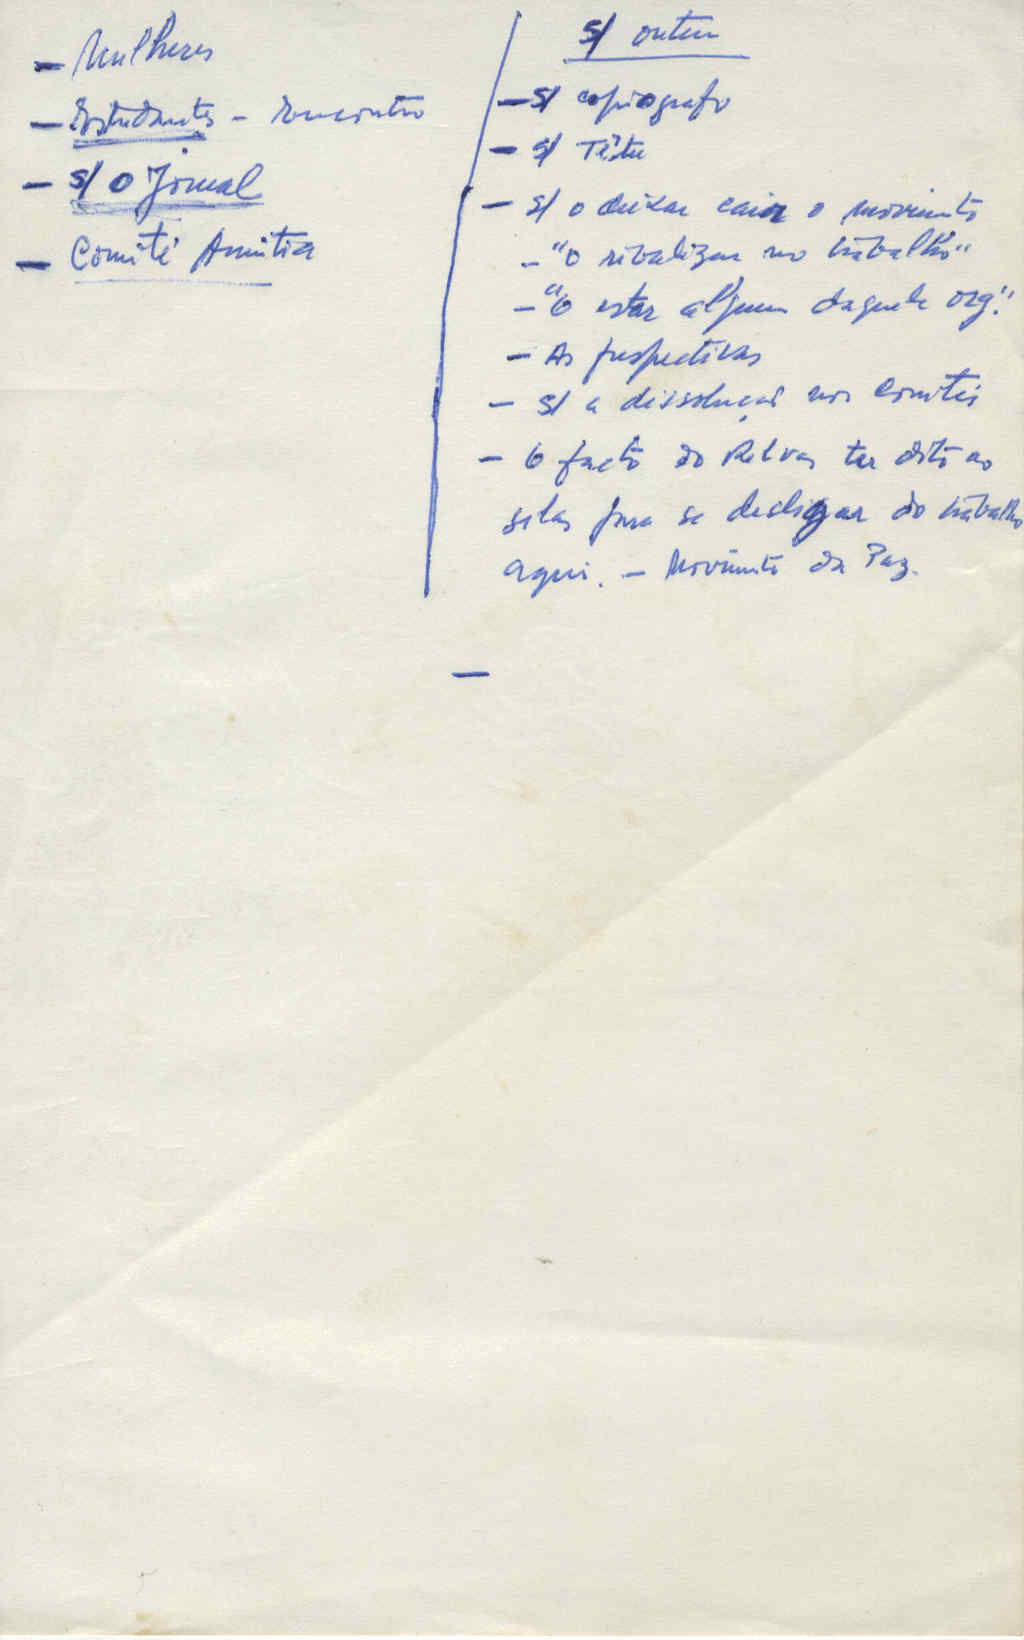 - Mulheres
- Estudantes - Encontro
- s/ o Jornal
- Comité Amnistia
s/ ontem
- s/ copiografo
- s/
- s/ o deixar cair o movimento
- "o ribalizar no trabalho"
- "O estar alguem daquela org."
- As prespectivas
- s/ a dissolução nos Comités
- O facto do Relvas ter dito ao
Silas para se desligar do trabalho
aqui. - Movimento da Paz.
-